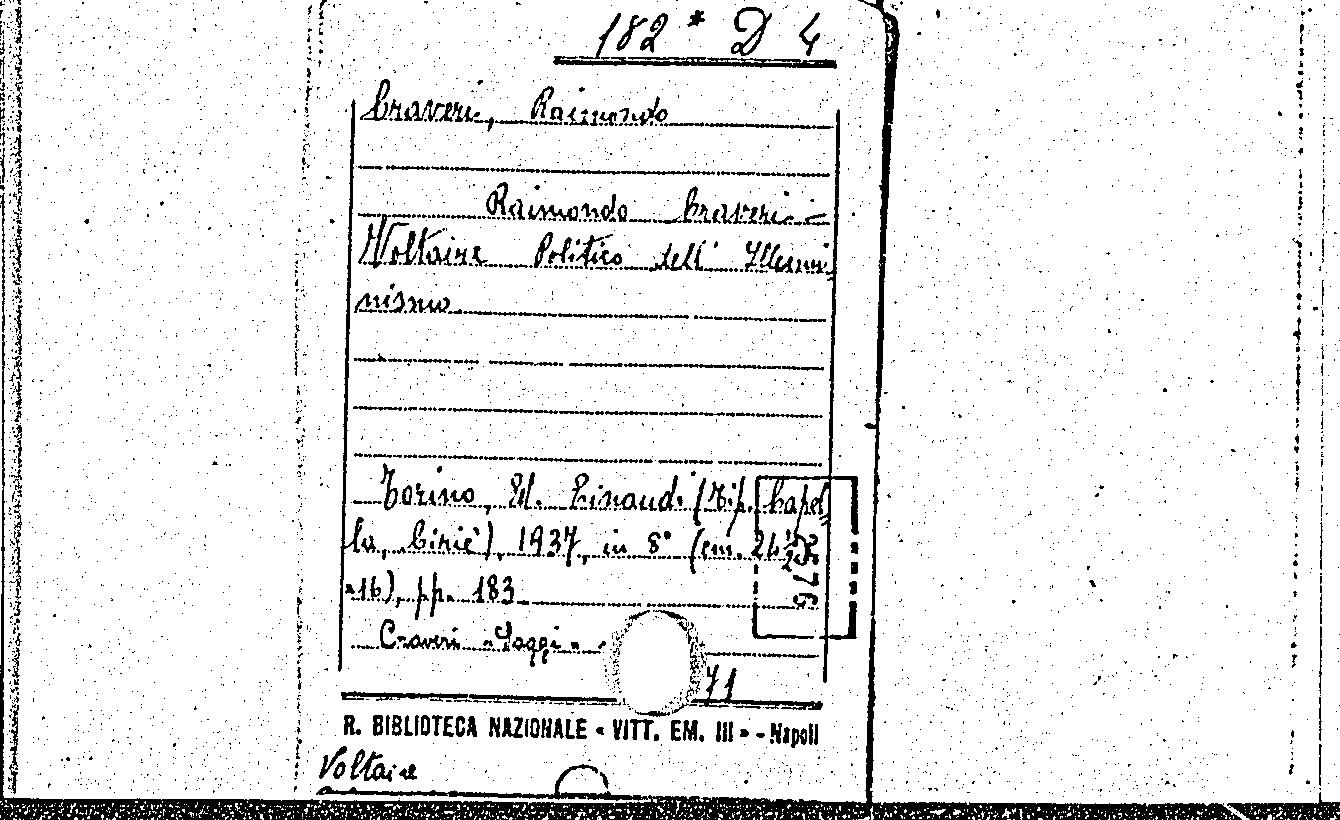 182 * D 4
Craveri, Raimondo
Raimondo Craveri -
Voltaire Politico dell' Illumi
nismo
Torino, Ed. Einaudi (Tip. Capel
la, Cirié), 1937, in 8° (cm.
×16), pp. 183
Craveri "Saggi" -
71
R. BIBLIOTECA NAZIONALE « VITT. EM. III » - Napoli
Voltaire